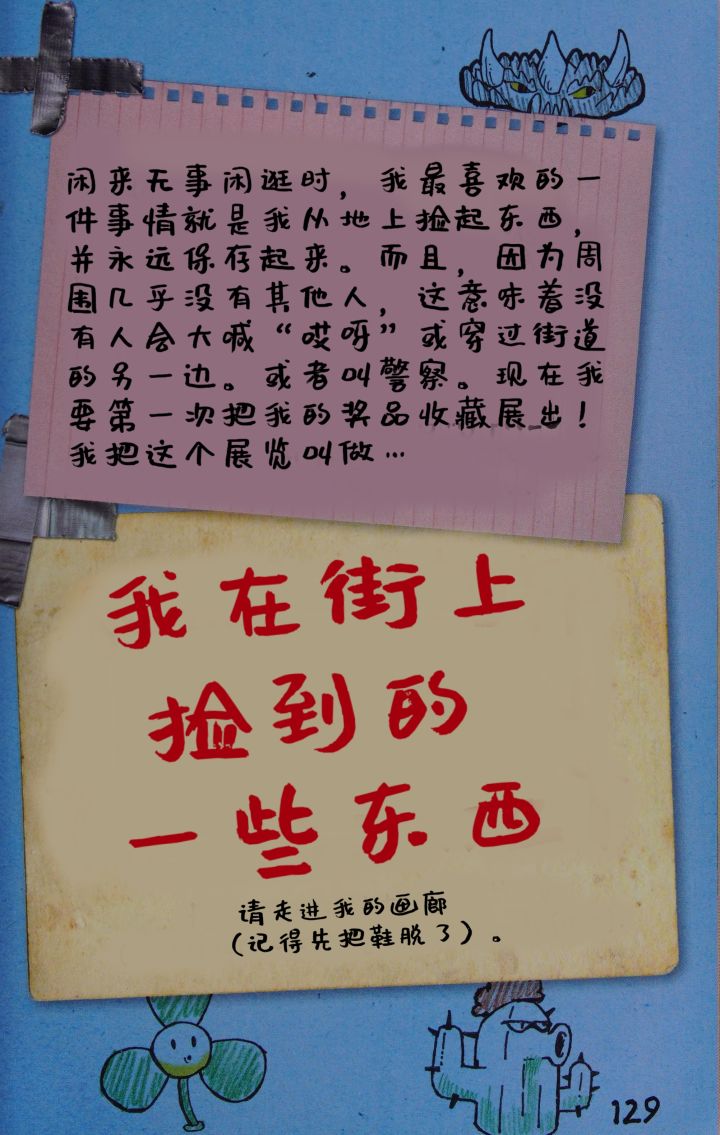 闲来无事闲逛时，我最喜欢的一
件事情就是我从地上捡起东西，
并永远保存起来。而且，因为周
围几乎没有其他人，这意味着没
有人会大喊“哎呀”或穿过街道
的另一边。或者叫警察。现在我
要第一次把我的奖品收藏展出！
我把这个展览叫做…
我在街上
捡到的
一些东西
请走进我的画廊
（记得先把鞋脱了）。
129